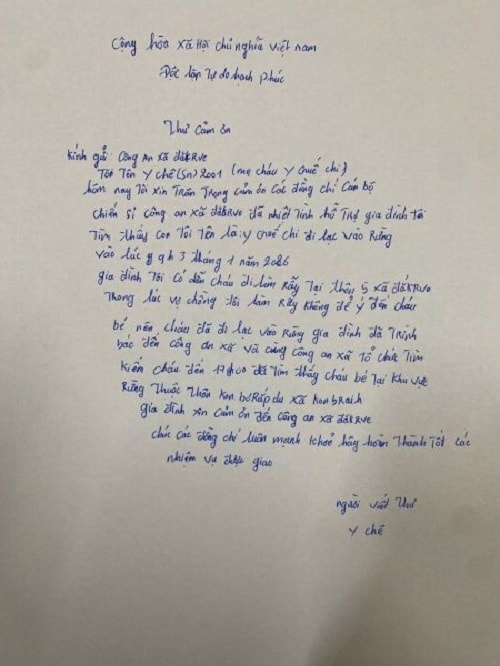 Cộng hòa xã Hội chủ nghĩa việt nam
Độc lập Tự do hạnh phúc
Thư cảm ơn
Kính gửi: Công An xã đăkRVe
Tôi Tên Y Chê (SN) 2001 (mẹ cháu Y chuế chi)
hôm nay Tôi xin Trân Trọng cảm ơn các đồng chí Cán bộ
chiến sĩ công an xã đăkRve đã nhiệt tình hỗ Trợ gia đình tôi
Tìm thấy con Tôi Tên là: y chuế chi đi lạc vào Rừng
vào lúc 9h 3 tháng 1 năm 2026
gia đình Tôi có dẫn cháu đi làm Rẫy Tại thôn 5 xã đăkRve
Trong lúc vợ chồng tôi làm Rẫy không để ý đến cháu
bé nên cháu đã đi lạc vào Rừng gia đình đã Trình
báo đến công an xã và cùng công an xã tổ chức Tìm
kiếm cháu đến 17h00 đã Tìm thấy cháu bé Tại khu vực
Rừng Thuộc Thôn Kon bơRấpdu xã KonbRaih
gia đình xin cảm ơn đến công an xã đăkRve
chúc các đồng chí luôn mạnh khoẻ hãy hoàn Thành Tốt các
nhiệm vụ được giao
người viết Thư
Y chê